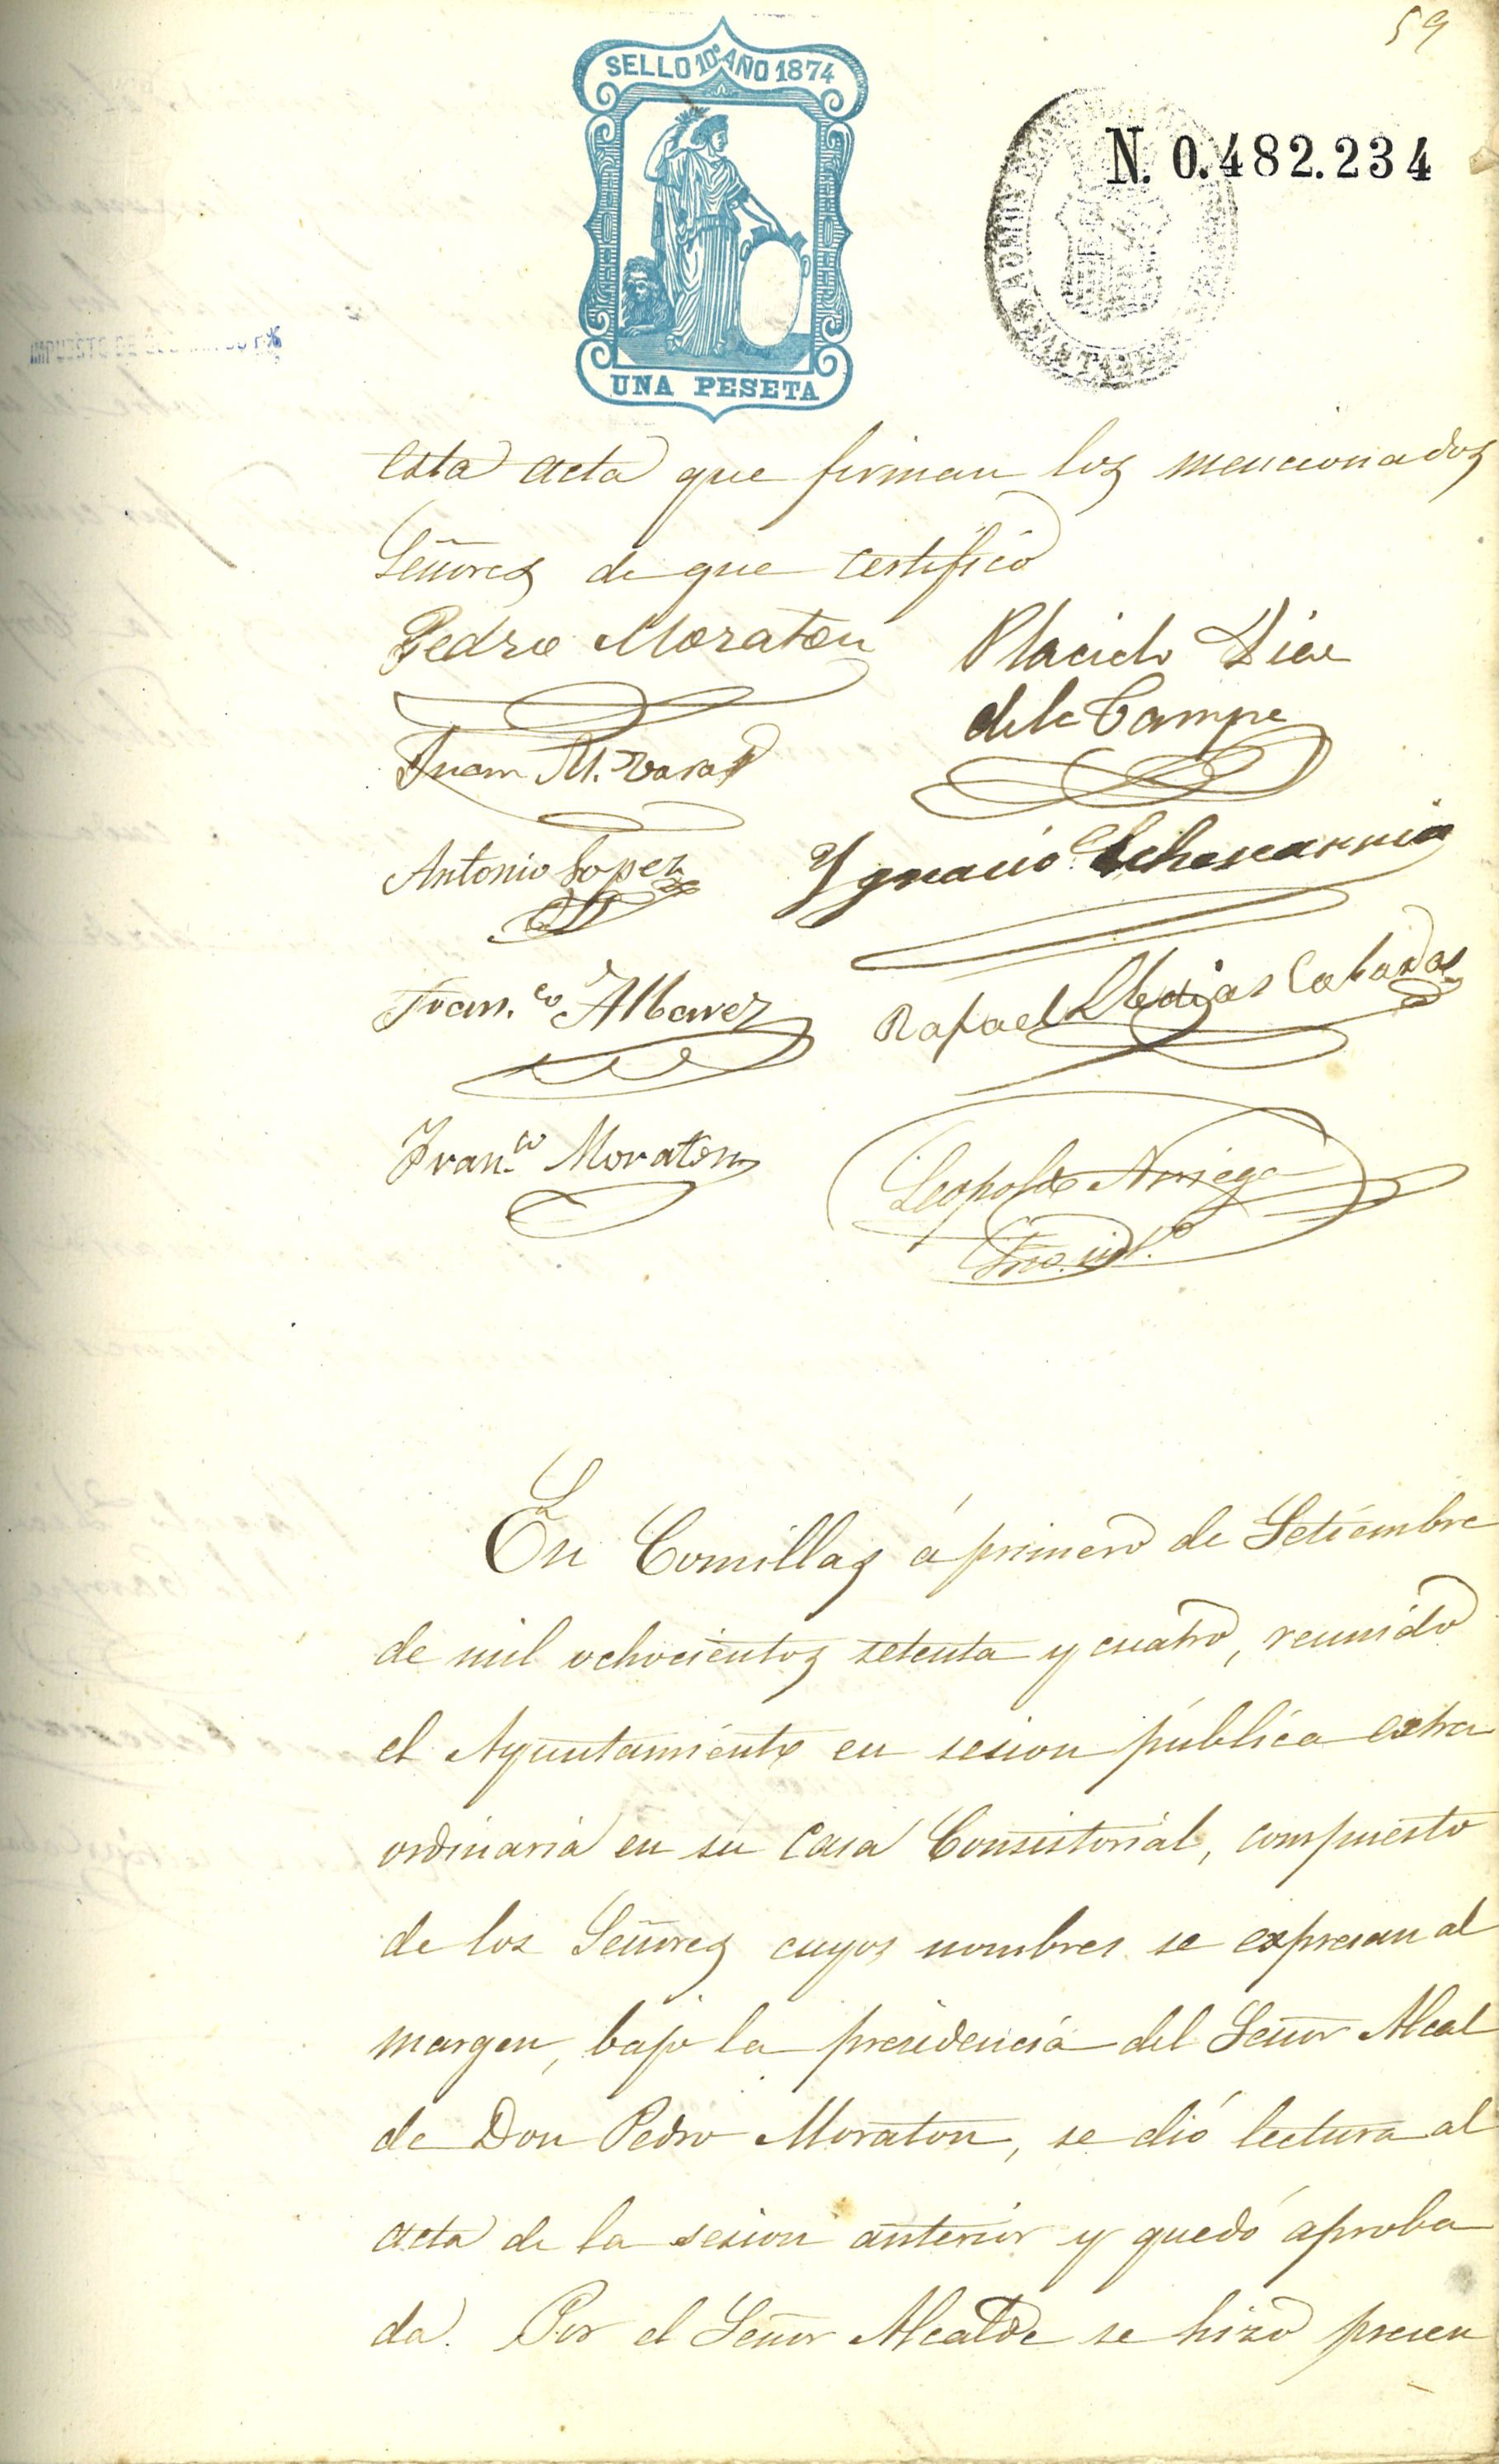 59
SELLO 10º AÑO 1874
N. 0.482.234
UNA PESETA
esta acta que firman los mencionados
Señores de que certifico
Pedro Moraton
Placido Diaz
de la Campa
Juan M.
Antonio Lopez
Ygnacio Echevarria
Fran.co
Rafael Cabañas
Fran.co Moraton
Leopoldo Noriega
En Comillas á primero de Setiembre
de mil ochocientos setenta y cuatro, reunido
el Ayuntamiento en sesion pública extra
ordinaria en su casa Consistorial, compuesto
de los Señores cuyos nombres se expresan al
margen, bajo la presidencia del Señor Alcal
de Don Pedro Moraton, se dió lectura al
acta de la sesion anterior y quedó aproba
da. Por el Señor Alcalde se hizo presen